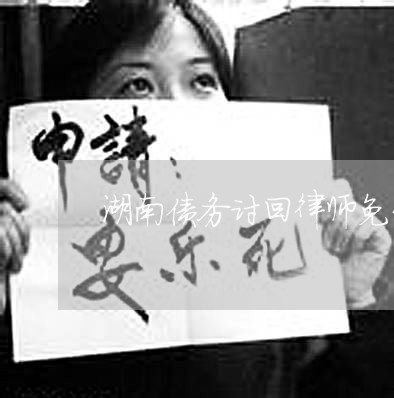 申請：
湖南债务讨回律师免
安乐死